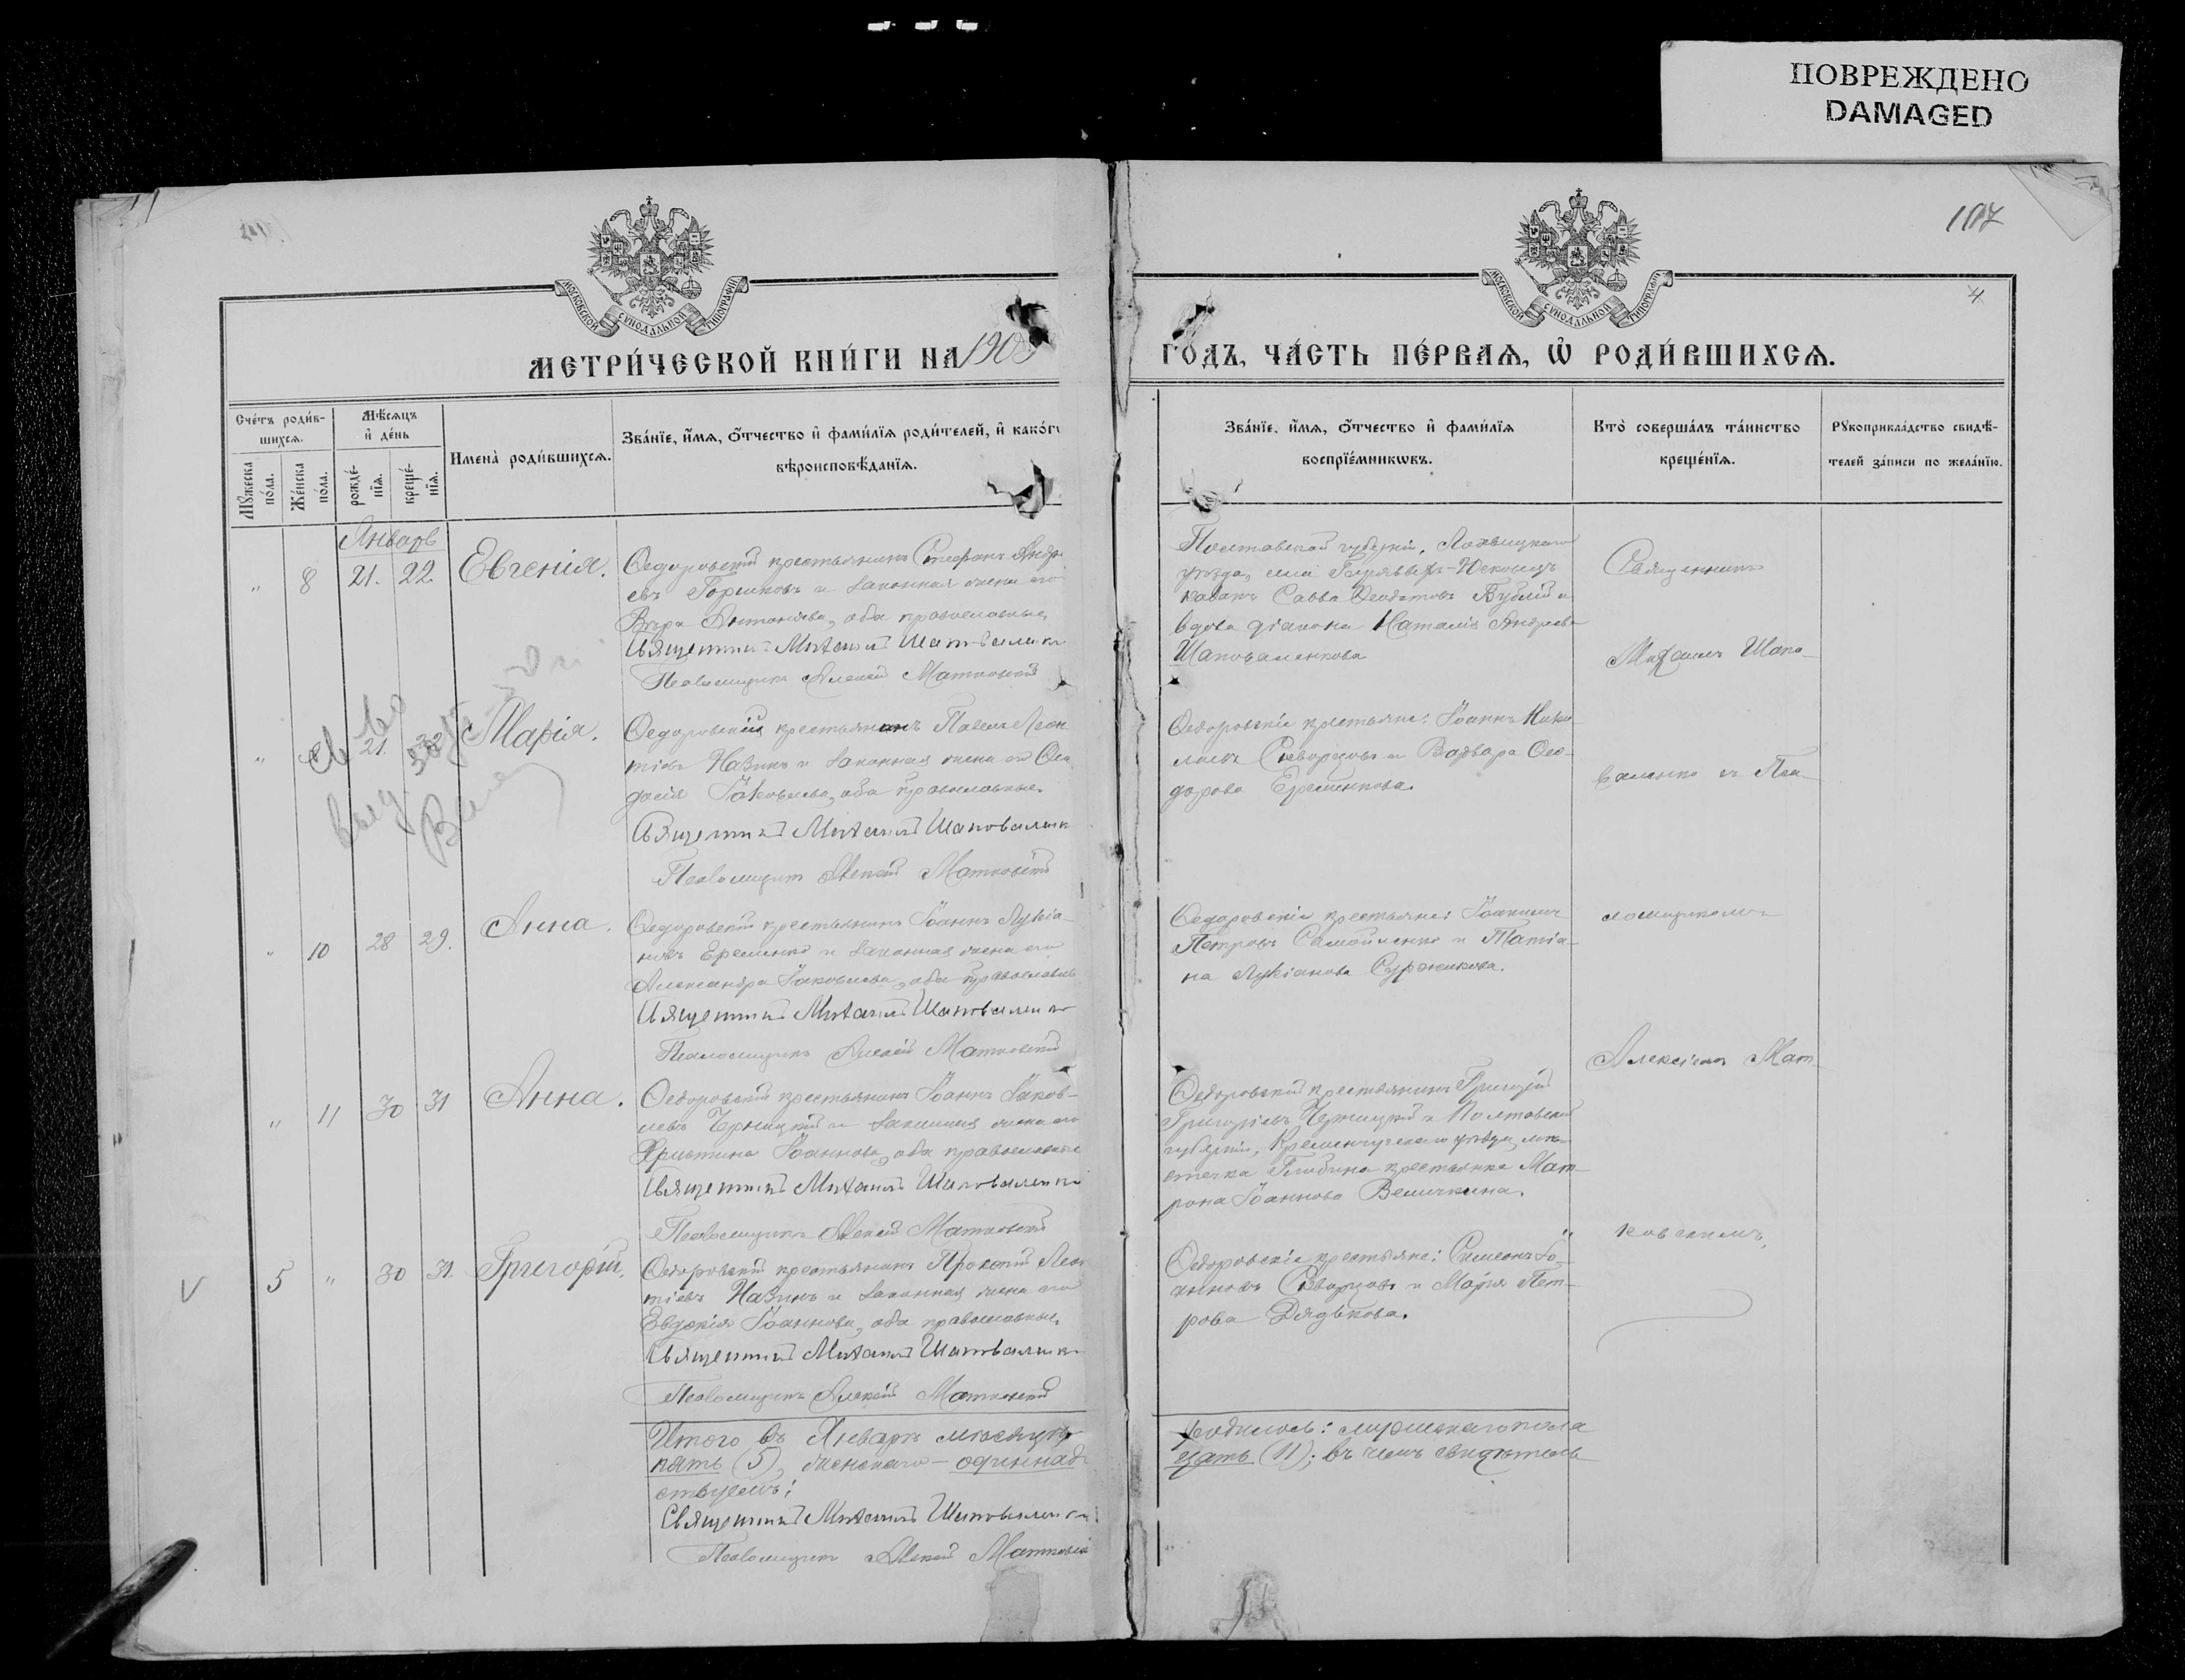 ПОВРЕЖДЕНО
DAMAGED
107
4
МОСКОВСКОЙ СѴНОДАЛЬНОЙ ТИПОГРАФІИ
МОСКОВСКОЙ СѴНОДАЛЬНОЙ ТИПОГРАФІИ
МЕТРИ́ЧЕСКОЙ КНИ́ГИ НА 190
ГОДЪ, ЧА́СТЬ ПЕ́РВАѦ, Ѡ҆ РОДИ́ВШИХСѦ.
Сче́тъ роди́в-
шихсѧ.
Мꙋ́жеска по́ла.
Же́нска по́ла.
Мѣ́сѧцъ
и҆ де́нь
рожде́-
нїѧ.
креще́-
нїѧ.
Имена̀ роди́вшихсѧ.
Зва́нїе, и҆́мѧ, ѻ҆́тчество и҆ фами́лїѧ роди́телей, и҆ како́гѡ
вѣроисповѣ́данїѧ.
Зва́нїе, и҆́мѧ, ѻ҆́тчество и҆ фами́лїѧ
воспрїе́мникѡвъ.
Кто̀ соверша́лъ та́инство
креще́нїѧ.
Рꙋкоприкла́дство свидѣ́-
телей за́писи по жела́нїю.
Январь
" 8 21. 22. Евгенія.
Ѳедоровскій крестьянинъ Стефанъ Андре
евъ Горшковъ и законная жена его
Вѣра Антоніева, оба православные.
Священникъ Михаилъ Шаповаленко
Псаломщикъ Алексій Матковскій
Полтавской губерніи, Лохвицкаго
уѣзда, села
казакъ Савва и
вдова діакона Наталія Андреева
Шаповаленкова
Священникъ
Михаилъ Шапо-
" 21. 22 Марія.
Ѳедоровскій крестьянинъ Павелъ Леон
тіевъ Назинъ и законная жена его Ѳео
досія Іаковлева, оба православные.
Священникъ Михаилъ Шаповаленко
Псаломщикъ Алексій Матковскій
Ѳедоровскіе крестьяне: Іоаннъ Нико
лаевъ Скворцовъ и Варвара Ѳео-
дорова Еременкова.
валенко съ Пса-
" 10 28 29. Анна.
Ѳедоровскій крестьянинъ Іоаннъ Лукіа-
новъ Еременко и законная жена его
Александра Іаковлева, оба православные
Священникъ Михаилъ Шаповаленко
Псаломщикъ Алексій Матковскій
Ѳедоровскіе крестьяне: Іоакимъ
Петровъ Самойленко и Татіа-
на Лукіанова Суржикова.
ломщикомъ
" 11 30 31 Анна.
Ѳедоровскій крестьянинъ Іоаннъ Іаков-
левъ Черницкій и законная жена его
Христина Іоаннова, оба православные
Священникъ Михаилъ Шаповаленко
Псаломщикъ Алексій Матковскій
Ѳедоровскій крестьянинъ Григорій
Григоріевъ Черницкій и Полтавской
губерніи, Кременчугскаго уѣзда, мѣ-
стечка Глобина крестьянка Мат-
рона Іоаннова Величкина.
Алексіемъ Мат-
V 5 " 30 31. Григорій.
Ѳедоровскій крестьянинъ Прокопій Леон
тіевъ Назинъ и законная жена его
Евдокія Іоаннова, оба православные.
Священникъ Михаилъ Шаповаленко
Псаломщикъ Алексій Матковскій
Ѳедоровскіе крестьяне: Симеонъ Іо-
анновъ Скворцовъ и Марія Пет-
рова Дядькова.
ковскимъ.
Итого въ Январѣ мѣсяцѣ родилось: мужескаго пола
пять (5), женскаго – одиннадцать (11); въ чемъ свидѣтель
ствуемъ:
Священникъ Михаилъ Шаповаленко
Псаломщикъ Алексій Матковскій